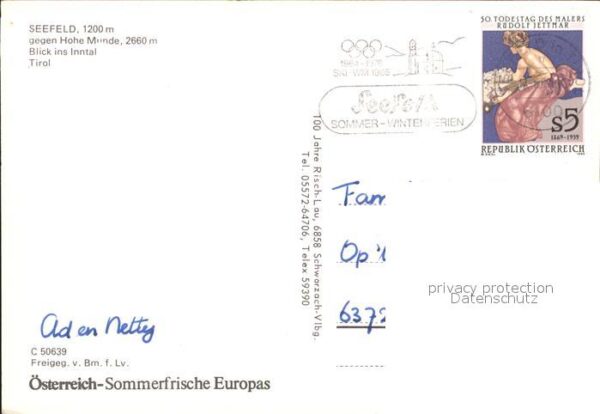 SEEFELD, 1200 m
gegen Hohe Munde, 2660 m
Blick ins Inntal
Tirol
SKI-WM 1985
Seefeld
SOMMER-WINTERFERIEN
50. TODESTAG DES MALERS
RUDOLF JETTMAR
s5
1869-1939
REPUBLIK ÖSTERREICH
100 Jahre Risch-Lau, 6858 Schwarzach-Vlbg.
Tel. 05572-64706, Telex 59390
Fam
Op '
6372
privacy protection
Datenschutz
Ad en Netty
C 50639
Freigeg. v. Bm. f. Lv.
Österreich-Sommerfrische Europas